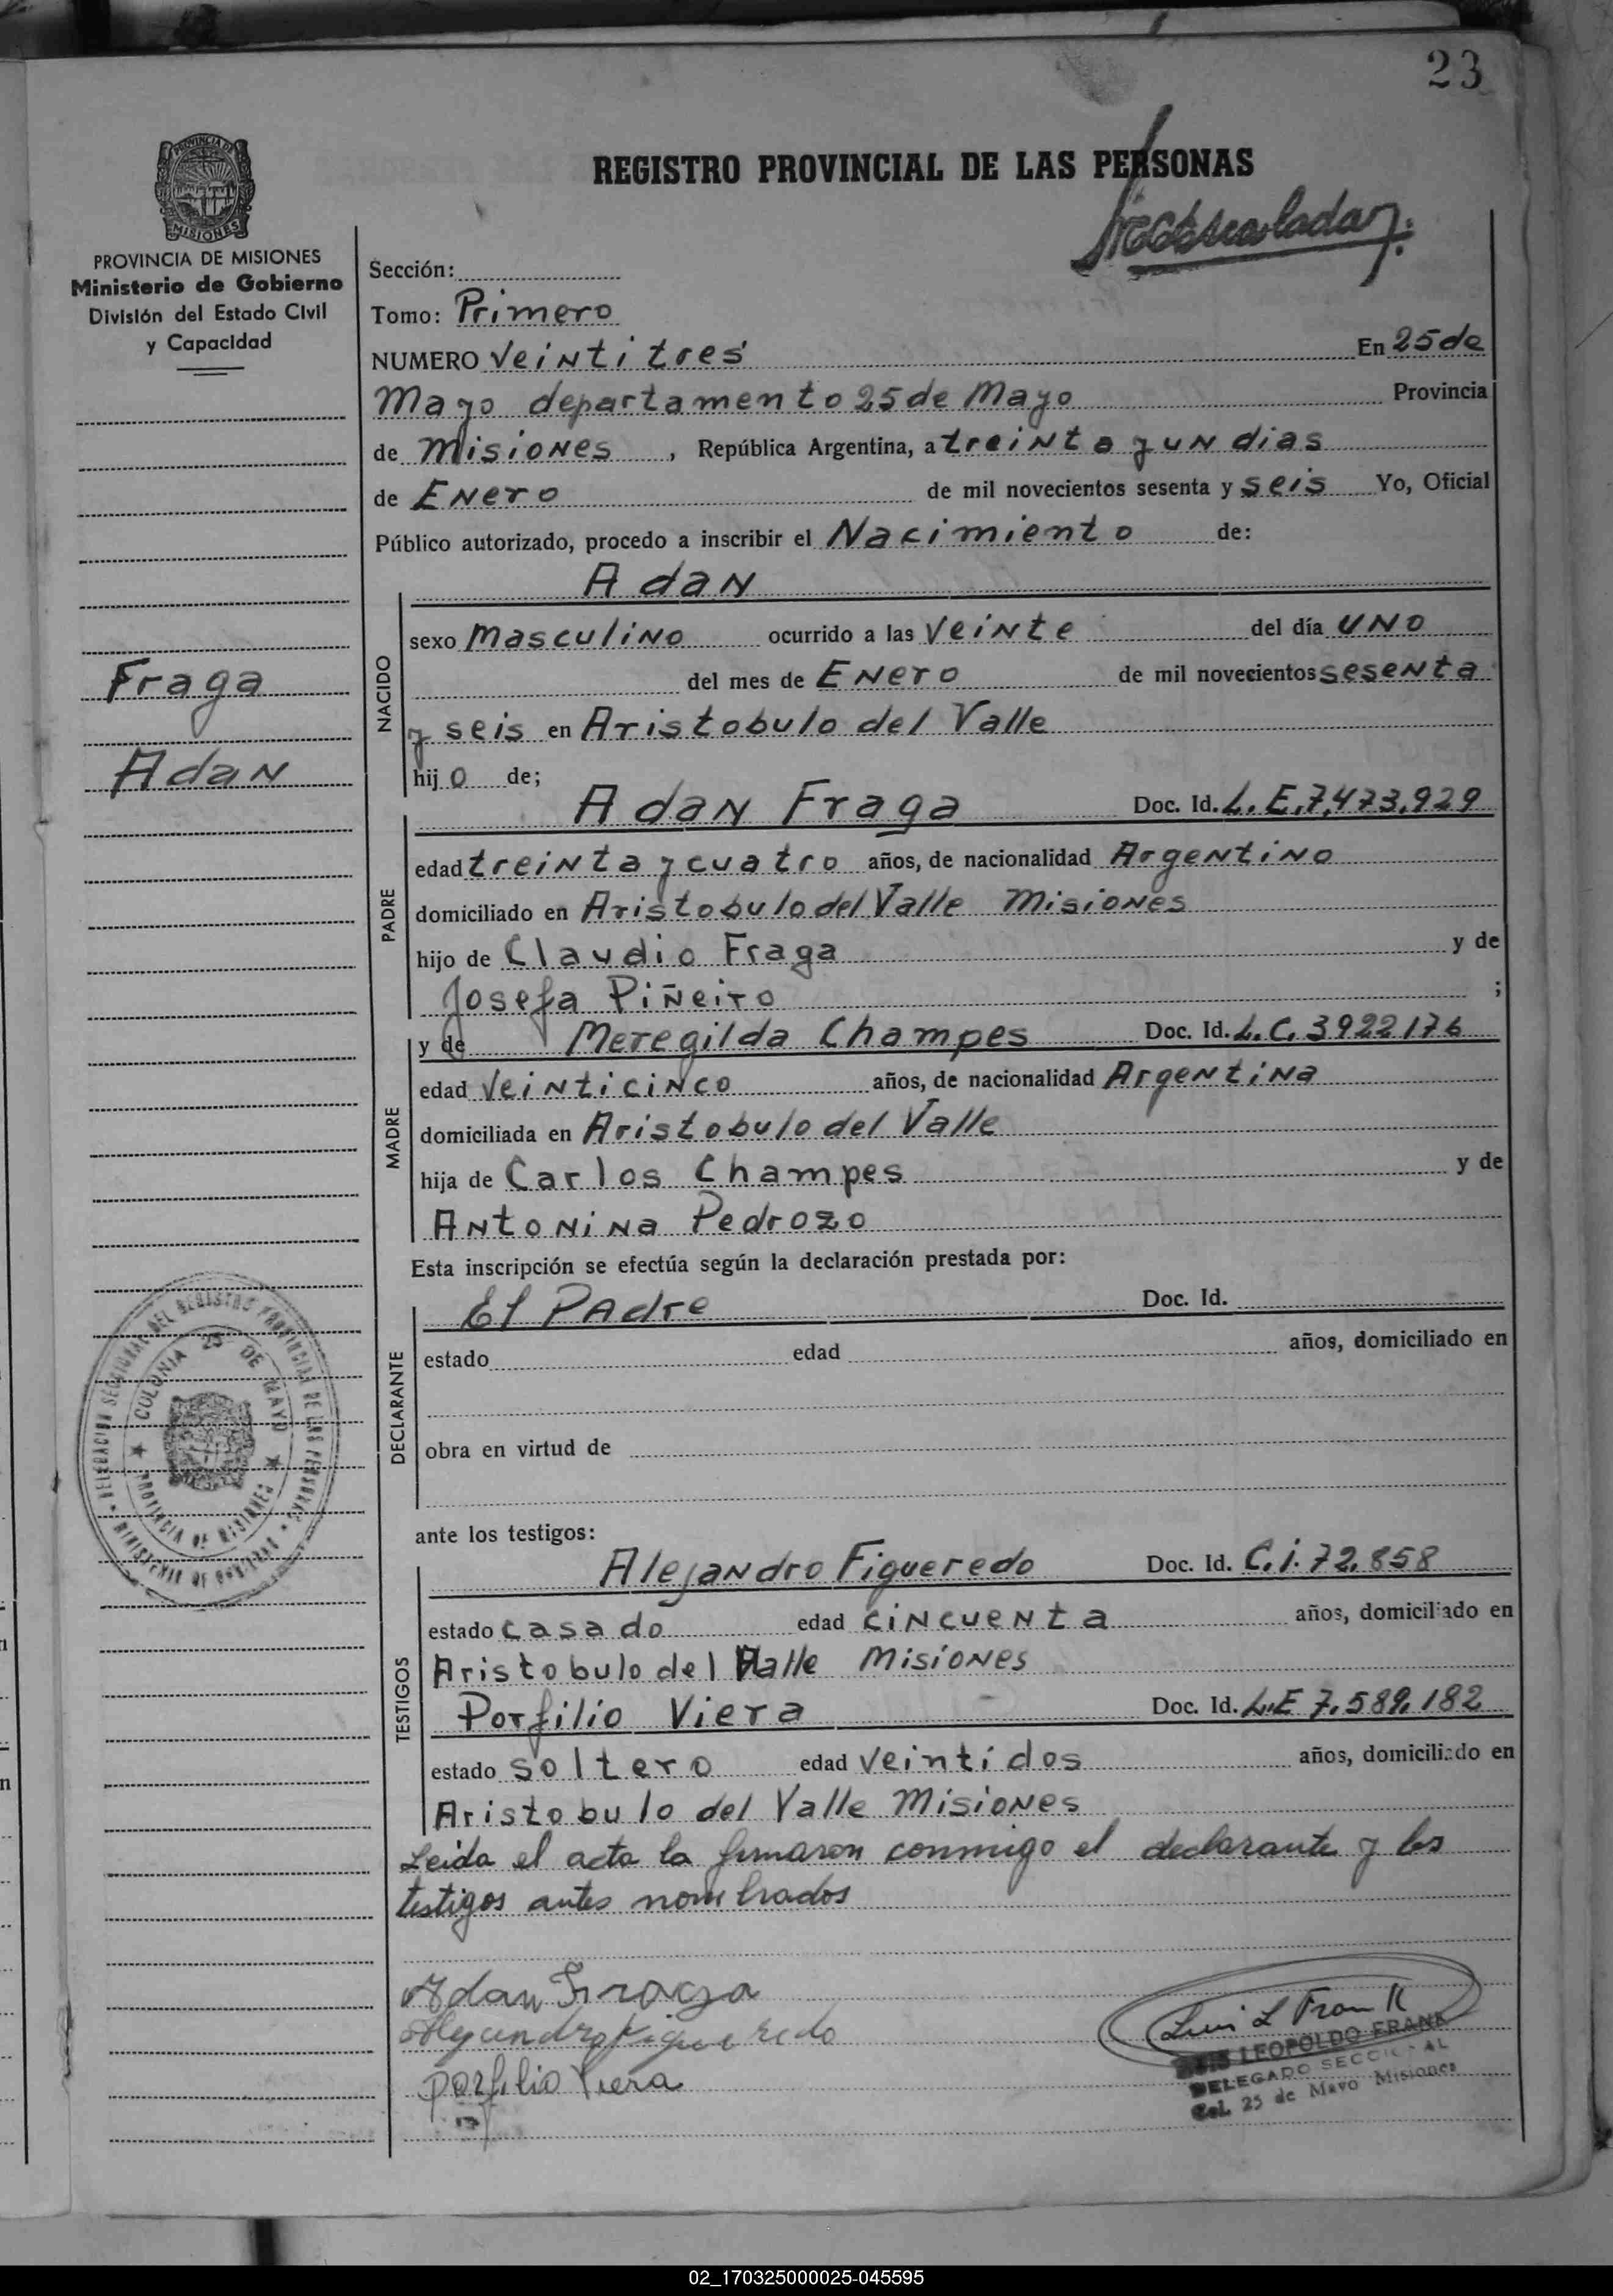 23
REGISTRO PROVINCIAL DE LAS PERSONAS
PROVINCIA DE
MISIONES
PROVINCIA DE MISIONES
Ministerio de Gobierno
División del Estado Civil
y Capacidad
Fraga
Adan
Sección:
Tomo: Primero
NUMERO Veinti tres En 25 de
Mayo departamento 25 de Mayo Provincia
de Misiones , República Argentina, a treinta y un dias
de Enero de mil novecientos sesenta y seis Yo, Oficial
Público autorizado, procedo a inscribir el Nacimiento de:
Adan
NACIDO
sexo masculino ocurrido a las Veinte del día uno
del mes de Enero de mil novecientos sesenta
y seis en Aristobulo del Valle
hij o de;
PADRE
Adan Fraga Doc. Id. L.E.7.473.929
edad treinta y cuatro años, de nacionalidad Argentino
domiciliado en Aristobulo del Valle Misiones
hijo de Claudio Fraga y de
Josefa Piñeiro ;
MADRE
y de Meregilda Champes Doc. Id. L.C. 3922176
edad Veinticinco años, de nacionalidad Argentina
domiciliada en Aristobulo del Valle
hija de Carlos Champes y de
Antonina Pedrozo
Esta inscripción se efectúa según la declaración prestada por:
DECLARANTE
El Padre Doc. Id.
estado edad años, domiciliado en
obra en virtud de
DELEGACION SECCIONAL DEL REGISTRO PROVINCIAL DE LAS PERSONAS
MINISTERIO DE GOBIERNO
COLONIA 25 DE MAYO
PROVINCIA DE MISIONES
ante los testigos:
TESTIGOS
Alejandro Figueredo Doc. Id. C.i. 72.858
estado casado edad cincuenta años, domiciliado en
Aristobulo del Valle Misiones
Porfilio Viera Doc. Id. L.E 7.589.182
estado soltero edad veintidos años, domiciliado en
Aristobulo del Valle Misiones
Leida el acta la firmaron conmigo el declarante y los
testigos antes nombrados
Adan Fraga
Alejandro Figueredo
porfilio Viera
Luis L Frank
LUIS LEOPOLDO FRANK
DELEGADO SECCIONAL
Col. 25 de Mayo Misiones
02_170325000025-045595